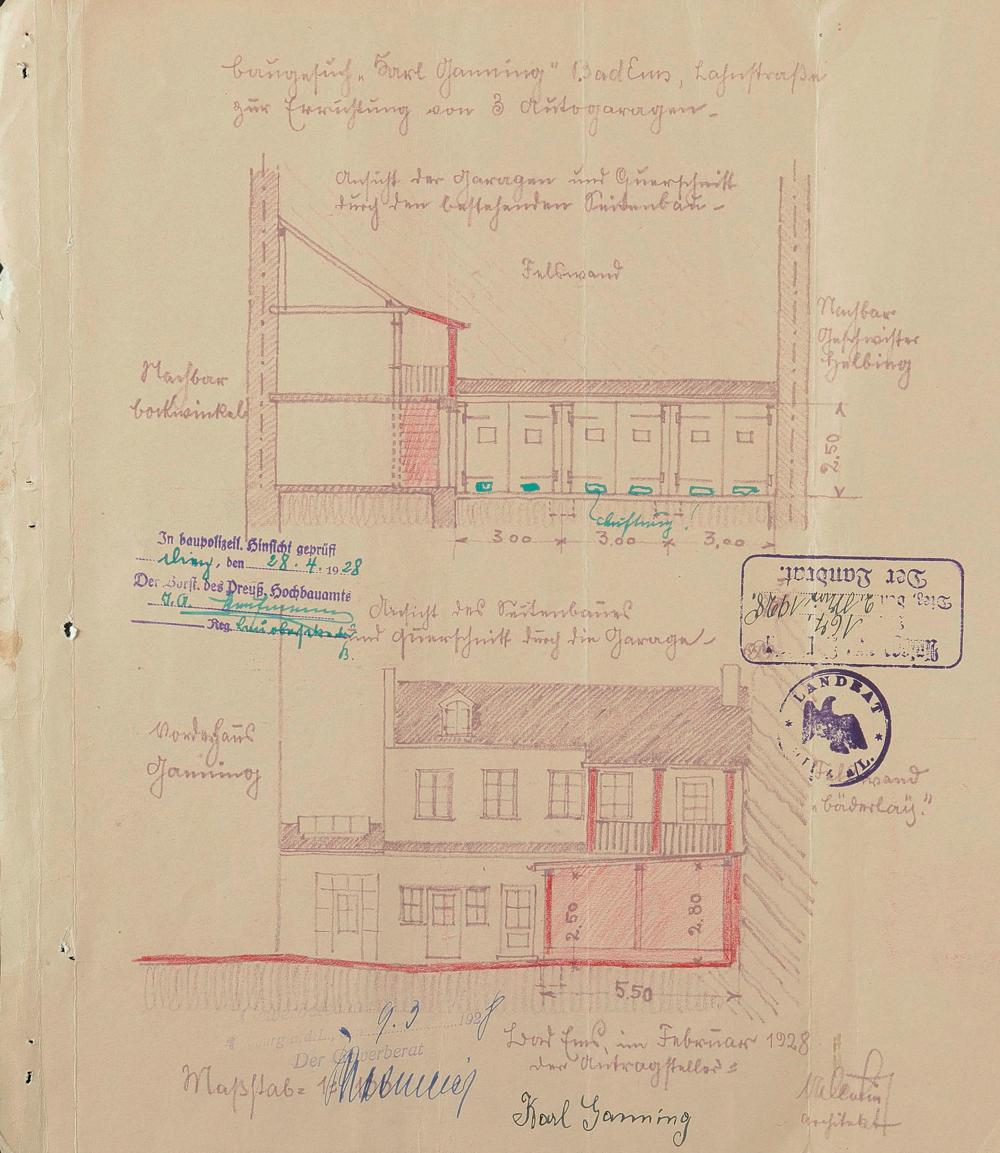 Baugesuch „Karl Ganning" Bad Ems, Lahnstraße
zur Errichtung von 3 Autogaragen.
Ansicht der Garagen und Querschnitt
durch den bestehenden Seitenbau.
Felswand
Nachbar
Geschwister
Helbing
Nachbar
Bockwinkel
2.50
Lüftung!
3.00
3.00
3,00
In baupolizeil. Hinsicht geprüft
Diez, den 28.4.1928
Der Vorst. des Preuß. Hochbauamts
I.A.
Reg.
Der Landrat.
Diez, den
1928.
167
Ansicht des Seitenbaues
und Querschnitt durch die Garage
LANDRAT
a/L.
Vorderhaus
Ganning
Felswand
„Bäderlay."
2.50
2.80
5.50
9.3 1928
Der Gewerberat
Bad Ems, im Februar 1928
der Antragsteller:
Maßstab=
Karl Ganning
Architekt